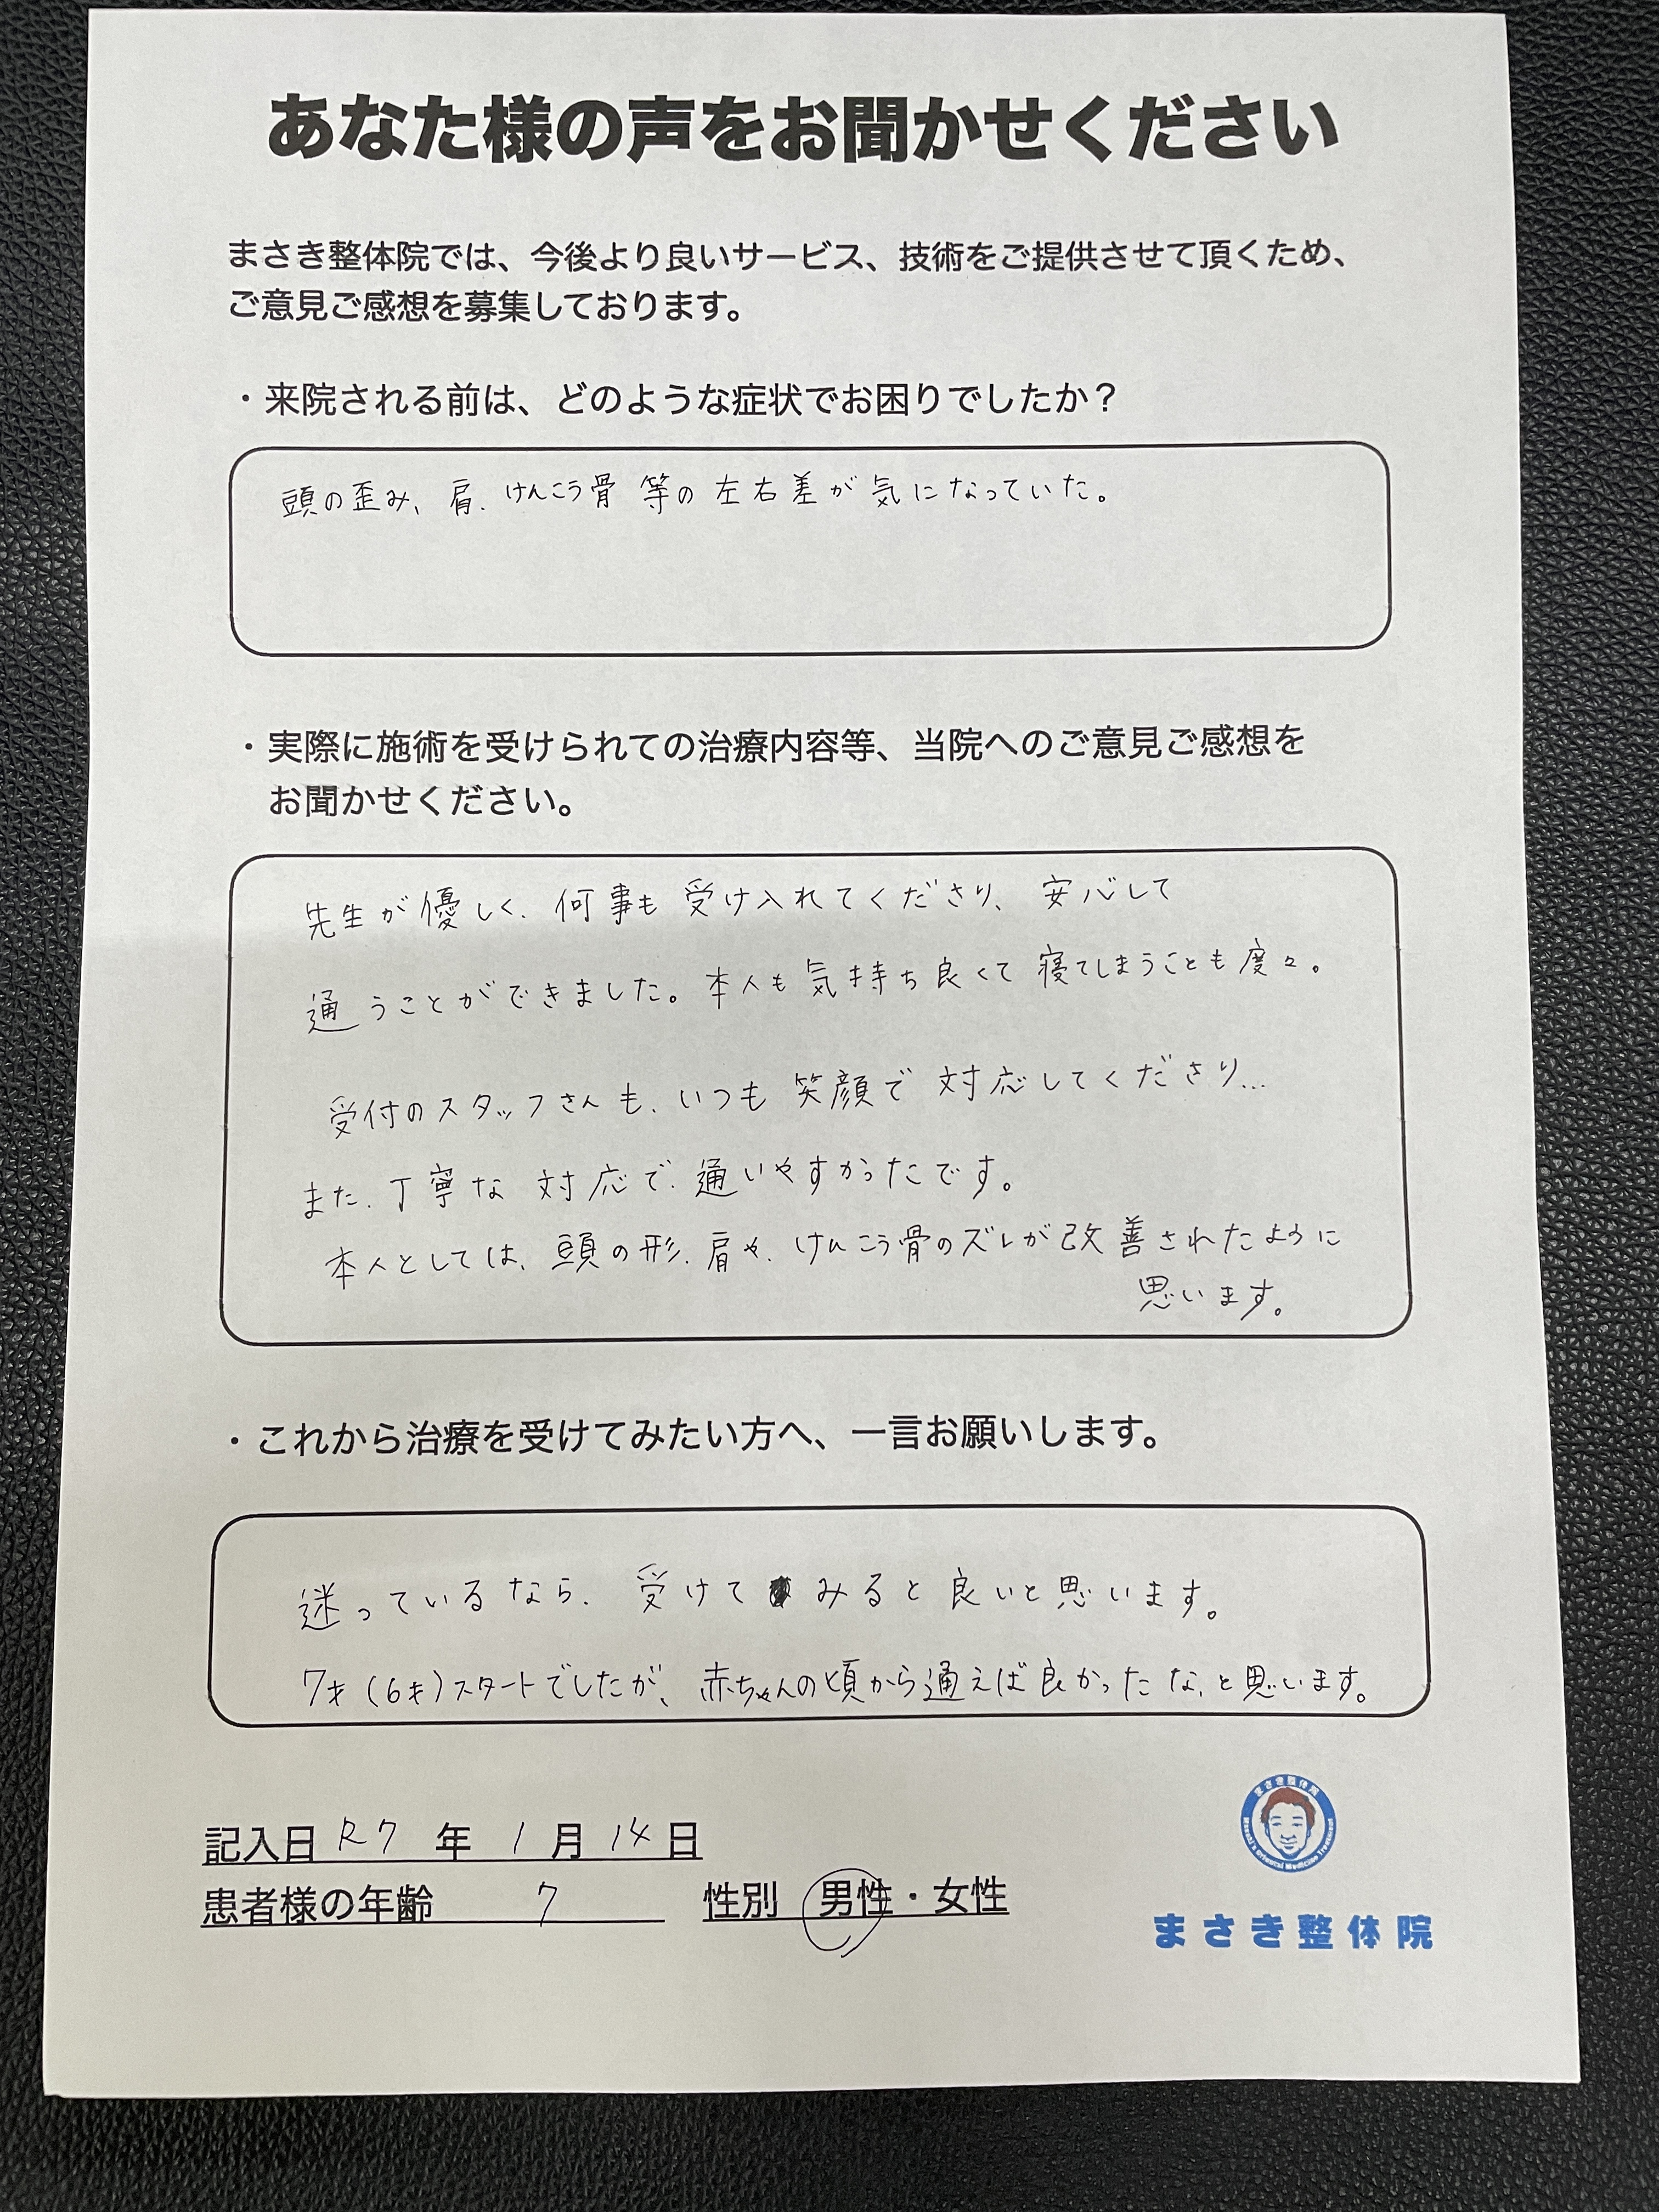 あなた様の声をお聞かせください
まさき整体院では、今後より良いサービス、技術をご提供させて頂くため、
ご意見ご感想を募集しております。
・来院される前は、どのような症状でお困りでしたか？
頭の歪み、肩、けんこう骨 等の 左右差が 気になっていた。
・実際に施術を受けられての治療内容等、当院へのご意見ご感想を
お聞かせください。
先生が優しく、何事も 受け入れてくださり、安心して
通うことができました。本人も気持ち良くて 寝てしまうことも度々。
受付のスタッフさんも、いつも 笑顔で 対応してくださり…
また、丁寧な 対応で、通いやすかったです。
本人としては、頭の形、肩や、けんこう骨のズレが改善されたように
思います。
・これから治療を受けてみたい方へ、一言お願いします。
迷っているなら、受けて みると良いと思います。
7才(6才)スタートでしたが、赤ちゃんの頃から通えば良かったな、と思います。
記入日 R7 年 1 月 14 日
患者様の年齢 7 性別 男性・女性
まさき整体院
Masaki's Oriental Medicine Treatment
まさき整体院